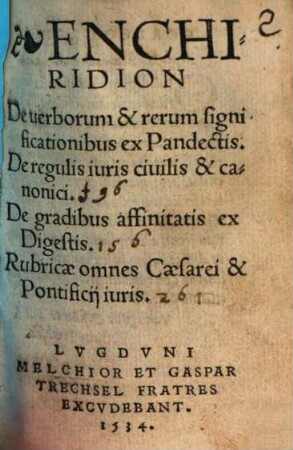 ENCHI-
RIDION
De uerborum & rerum signi
ficationibus ex Pandectis.
De regulis iuris ciuilis & ca-
nonici. 196
De gradibus affinitatis ex
Digestis. 156
Rubricæ omnes Cæsarei &
Pontificij iuris. 261
LVGDVNI
MELCHIOR ET GASPAR
TRECHSEL FRATRES
EXCVDEBANT.
1534.